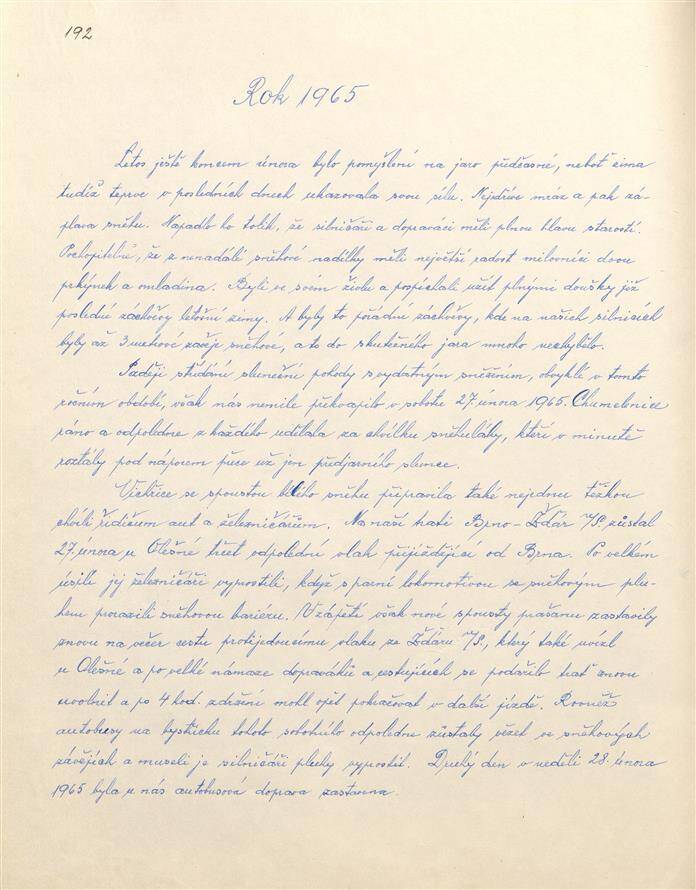 192
Rok 1965
Letos ještě koncem února bylo pomyšlení na jaro předčasné, neboť zima
tudíž teprve v posledních dnech ukazovala svou sílu. Nejdříve mráz a pak zá-
plava sněhu. Napadlo ho tolik, že silničáři a dopraváci měli plnou hlavu starostí.
Pochopitelně, že z nenadálé sněhové nadílky měli největší radost milovníci dvou
prkýnek a mládina. Byli ve svém živlu a pospíchali užít plnými doušky již
poslední záchvěvy letošní zimy. A byly to pořádné záchvěvy, kde na našich silnicích
byly až 3 metrové závěje sněhové, a to do skutečného jara mnoho nechybělo.
Pozdější střídání slunečné pohody s vydatným sněžením, obvyklé v tomto
ročním období, však nás nemile překvapilo v sobotu 27. února 1965. Chumelenice
ráno a odpoledne z každého udělala za chvilku sněhuláky, kteří v minutě
roztály pod náporem přece už jen předjarního slunce.
Vichřice se spoustou bílého sněhu připravila také nejednu těžkou
chvíli řidičům aut a železničářům. Na naší trati Brno - Žďár n/S. zůstal
27. února u Olešné třetí odpolední vlak přijíždějící od Brna. Po velkém
úsilí jej železničáři vyprostili, když s parní lokomotivou se sněhovým plu-
hem prorazili sněhovou bariéru. Vzápětí však nové spousty prašanu zastavily
znovu na večer cestu protijedoucímu vlaku ze Žďáru n/S., který také uvízl
u Olešné a po velké námaze dopraváků a cestujících se podařilo trať znovu
uvolnit a po 4 hod. zdržení mohl opět pokračovat v další jízdě. Rovněž
autobusy na bystřicku tohoto sobotního odpoledne zůstaly vězet ve sněhových
závějích a museli je silničáři pluhy vyprostit. Druhý den v neděli 28. února
1965 byla u nás autobusová doprava zastavena.